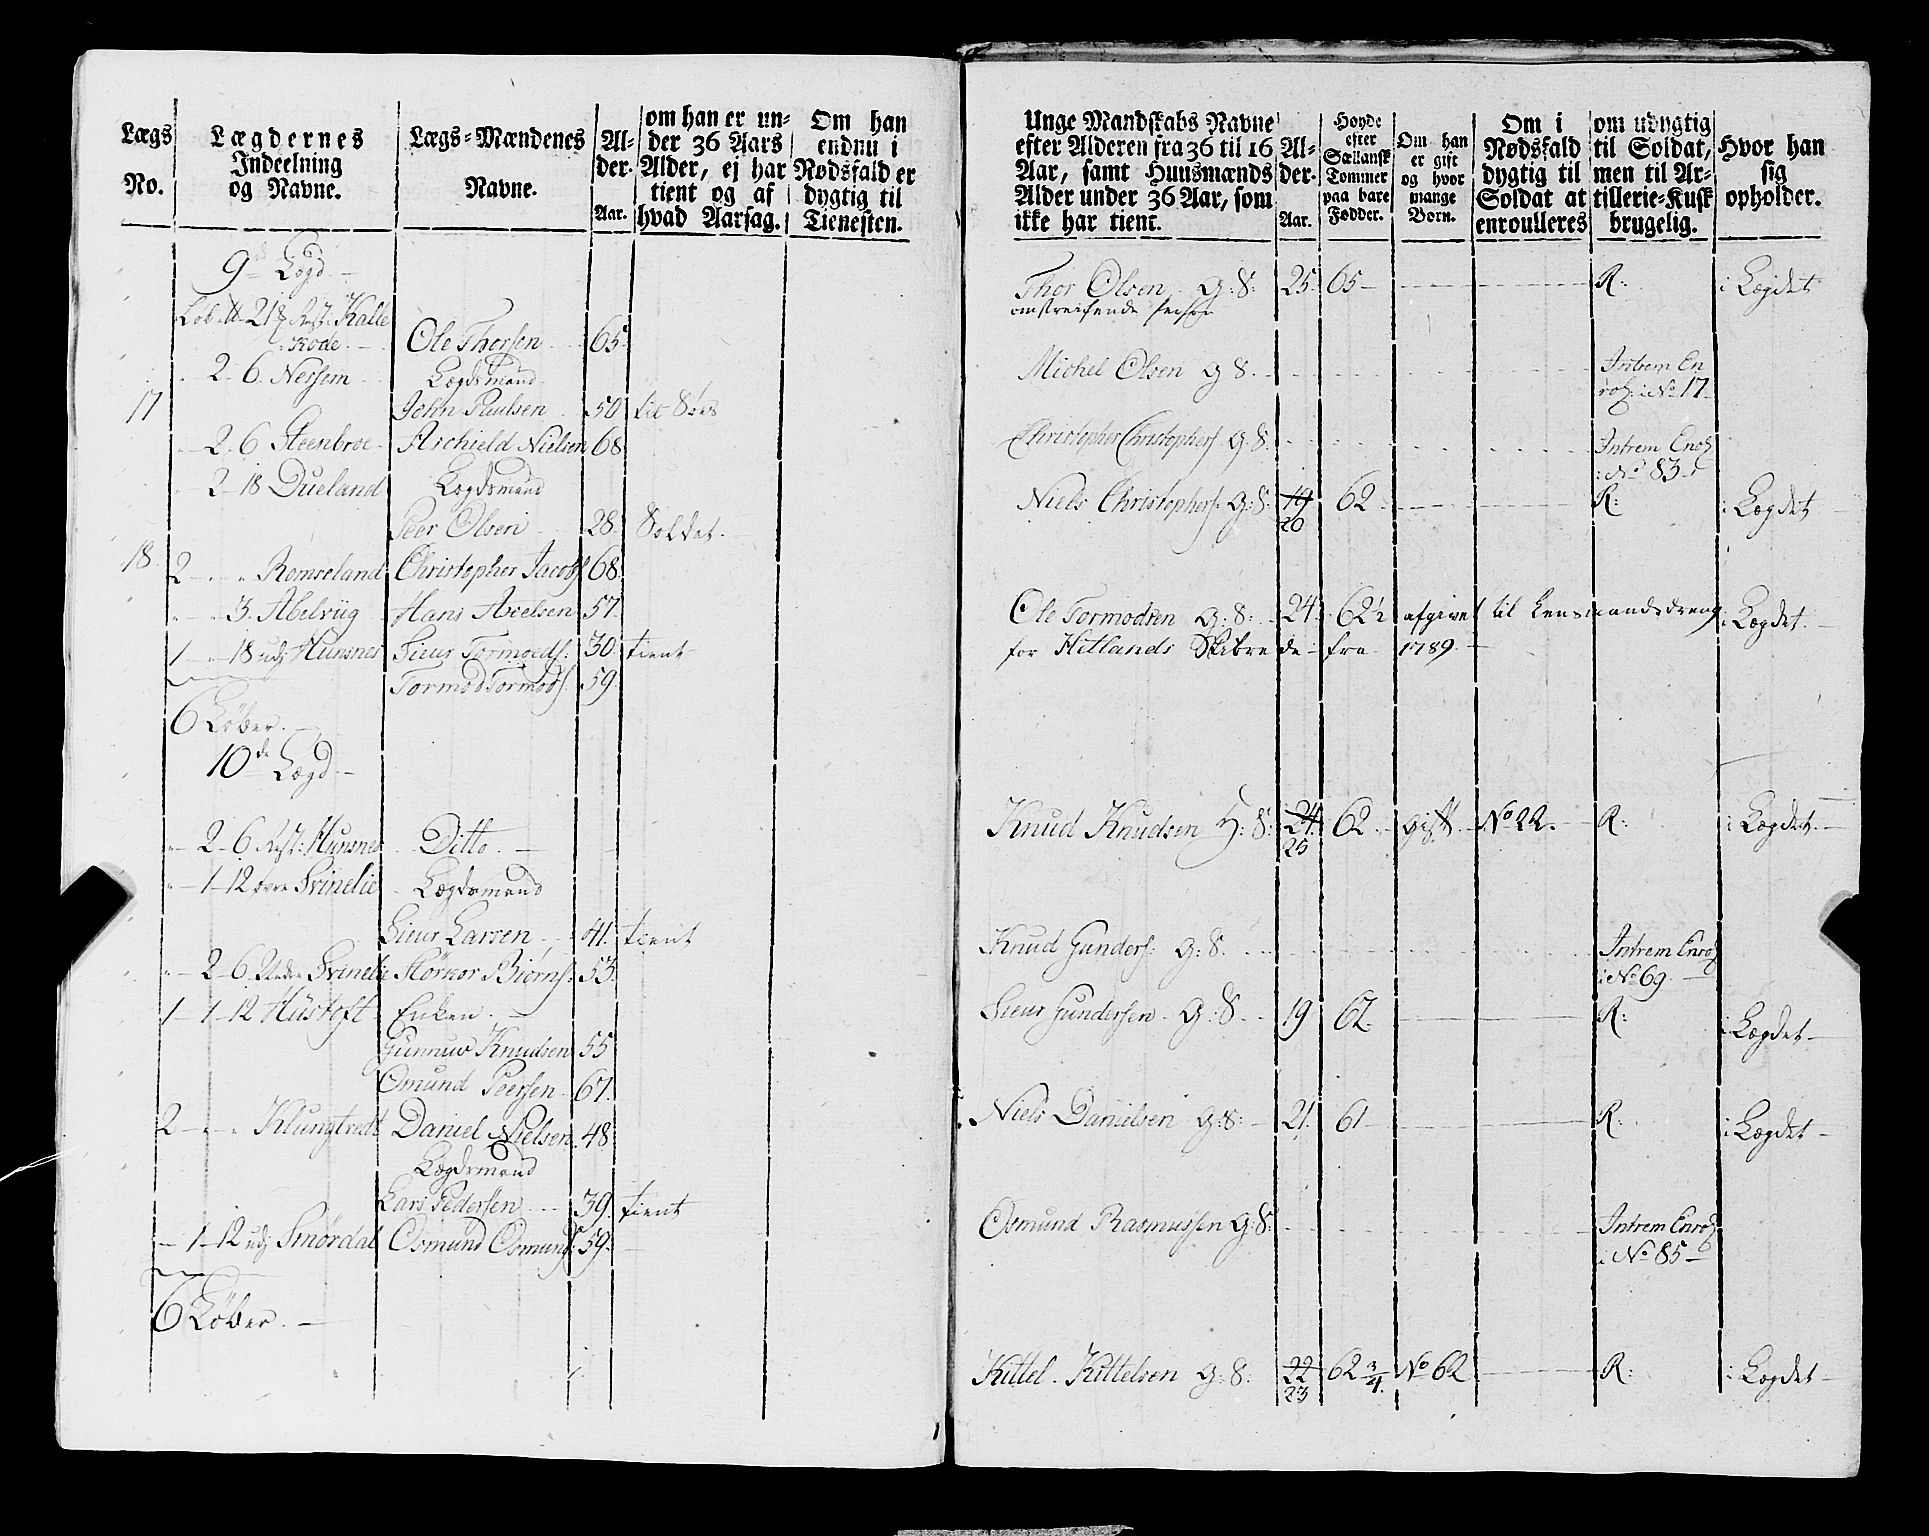 Lægs
No.
Lægdernes
Indeelning
og Navne.
Lægs-Mændenes
Navne.
Al-
der.
Aar.
om han er un-
der 36 Aars
Alder, ej har
tient og af
hvad Aarsag.
Om han
endnu i
Nødsfald er
dygtig til
Tienesten.
9de Lægd.
Løb. 218 Rest: Kalle
Kode.
Ole Thorsen 65.
2-6 Nersem Lægdsmand
17 John Paulsen 50 til Søes
2-6 Steenbroe Archield Nielsen 68
2-18 Dueland Lægdsmand
Peer Olsen 28. Soldat.
18. 2 - - Romseland Christopher Jacobs: 68.
3. Abelviig Hans Axelsen 57.
1 - 18 udj Hunsnes Sieur Tormoeds: 30. tient
Tormod Tormods: 59.
6 Løber.
10de Lægd.
2-6 Rest: Hunsnes Ditto.
1-12 øvre Svinelie Lægdsmand
Sieur Larsen 41. tient
2-6 Nedre Svinelie Hörkor Biörns: 53.
1-1-12 Hustoft Enken.
Gunnuv Knudsen 55
Osmund Peersen 67.
2 - - Klungtvedt Daniel Nielsen 48
Lægdsmand
Lars Pedersen 39. tient
1-12 udj Smørdal Osmund Osmunds: 59.
6 Løber.
Unge Mandskabs Navne
efter Alderen fra 36 til 16
Aar, samt Huusmænds
Alder under 36 Aar, som
ikke har tient.
Al-
der.
Aar.
Høyde
efter
Sællansk
Tommer
paa bare
Fødder.
Om han
er gift
og hvor
mange
Børn.
Om i
Nødsfald
dygtig til
Soldat at
enroulleres
om udygtig
til Soldat,
men til Ar-
tillerie-Kusk
brugelig.
Hvor han
sig
opholder.
Thor Olsen G:S: 25. 65 R: i Lægdet
omstreifende person
Michel Olsen G:S. Intrem En
rol: i No 17
Christopher Christophers: G:S. Intrem Enrol
i No 83.
Niels Christophers: G:S. 19 62 R: i Lægdet
20
Ole Tormodsen G:S: 24. 62½ afgivet til Lensmandsdreng i Lægdet.
for Hetlands Skibrede fra 1789.
Knud Knudsen H:S: 24 62. gift No 22. R: i Lægdet.
25
Knud Gunders: G:S. Intrem Enrol
i No 69.
Sieur Gundersen G:S. 19 62. R: i Lægdet
Niels Danielsen G:S: 21. 61 R: i Lægdet
Osmund Rasmussen G:S: Intrem Enrol
i No 85
Kittel Kittelsen G:S: 22 62¾. No 62 R: i Lægdet
23